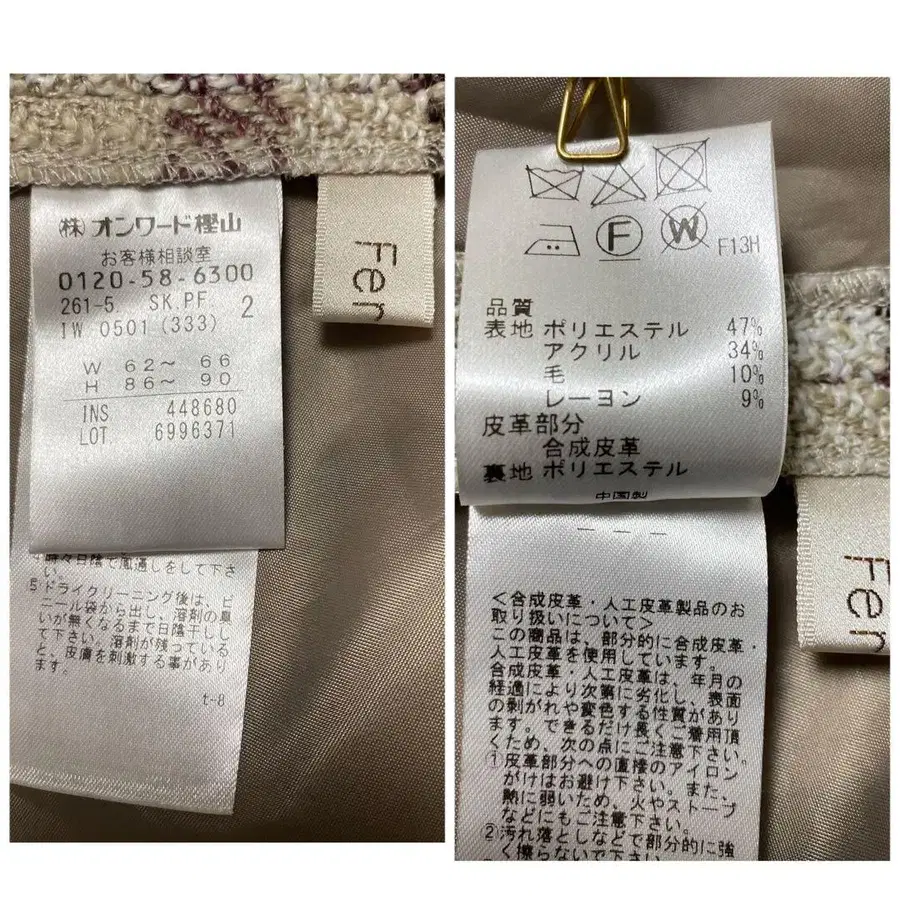 (株)オンワード樫山
お客様相談室
0120-58-6300
261-5 SK.PF. 2
IW 0501 (333)
W 62～ 66
H 86～ 90
INS 448680
LOT 6996371
Fer
い。
⑤ドライクリーニング後は、ビ
ニール袋から出し、溶剤の臭
いが無くなるまで日陰干しし
て下さい。溶剤が残っている
と、皮膚を刺激する事があり
ます。
t-8
F
W
F13H
品質
表地 ポリエステル 47%
アクリル 34%
毛 10%
レーヨン 9%
皮革部分
合成皮革
裏地 ポリエステル
中国製
Fer
<合成皮革・人工皮革製品のお
取り扱いについて>
この商品は、部分的に合成皮革・
人工皮革を使用しています。
合成皮革・人工皮革は、年月の
経過により次第に劣化し、表面
の剥がれや変色する性質があり
ます。できるだけ長くご着用頂
くため、次の点にご注意下さい。
①皮革部分への直接のアイロン
がけはお避け下さい。また、
熱に弱いため、火やストーブ
などにもご注意下さい。
②汚れ落としなどで部分的に強
く擦らないで下さい。